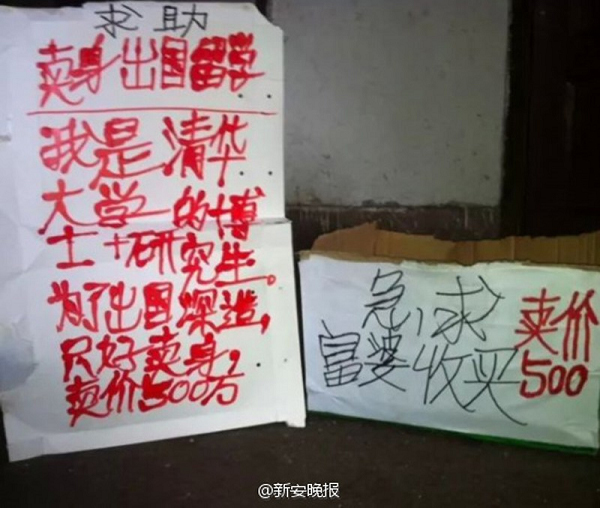 求助
卖身出国留学
我是清华
大学的博
士+研究生。
为了出国深造,
只好卖身,
卖价500万
急求
富婆收买
卖价
500
@新安晚报